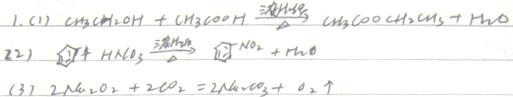 1.(1) CH3CH2OH + CH3COOH 浓H2SO4 △ CH3COOCH2CH3 + H2O
(2) + HNO3 浓H2SO4 △ NO2 + H2O
(3) 2Na2O2 + 2CO2 = 2Na2CO3 + O2↑